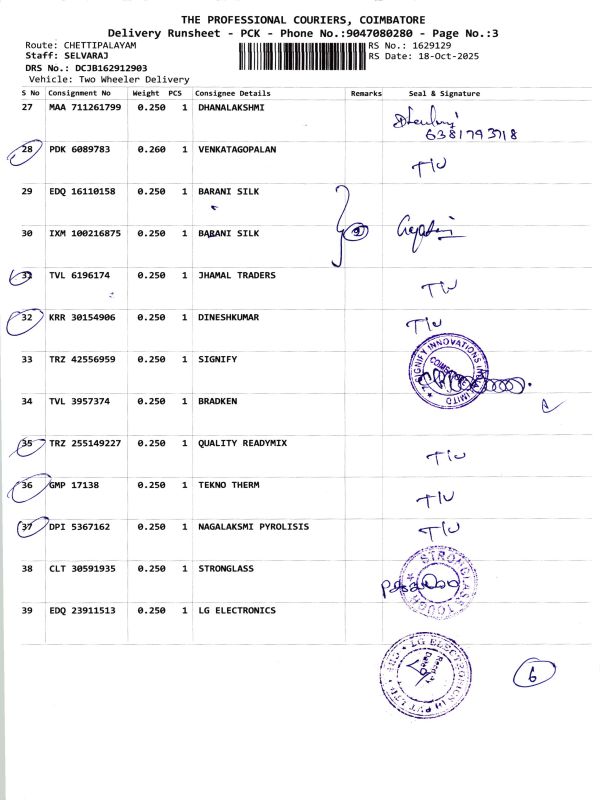 THE PROFESSIONAL COURIERS, COIMBATORE
Delivery Runsheet - PCK - Phone No.:9047080280 - Page No.:3
Route: CHETTIPALAYAM RS No.: 1629129
Staff: SELVARAJ RS Date: 18-Oct-2025
DRS No.: DCJB162912903
Vehicle: Two Wheeler Delivery
S No Consignment No Weight PCS Consignee Details Remarks Seal & Signature
27 MAA 711261799 0.250 1 DHANALAKSHMI
6381793718
28 PDK 6089783 0.260 1 VENKATAGOPALAN T/U
29 EDQ 16110158 0.250 1 BARANI SILK
30 IXM 100216875 0.250 1 BARANI SILK 2
31 TVL 6196174 0.250 1 JHAMAL TRADERS T/U
32 KRR 30154906 0.250 1 DINESHKUMAR T/U
33 TRZ 42556959 0.250 1 SIGNIFY SIGNIFY INNOVATIONS
34 TVL 3957374 0.250 1 BRADKEN
35 TRZ 255149227 0.250 1 QUALITY READYMIX T/U
36 GMP 17138 0.250 1 TEKNO THERM T/U
37 DPI 5367162 0.250 1 NAGALAKSMI PYROLISIS T/U
38 CLT 30591935 0.250 1 STRONGLASS STRONGLASS
39 EDQ 23911513 0.250 1 LG ELECTRONICS
LG ELECTRONICS
6